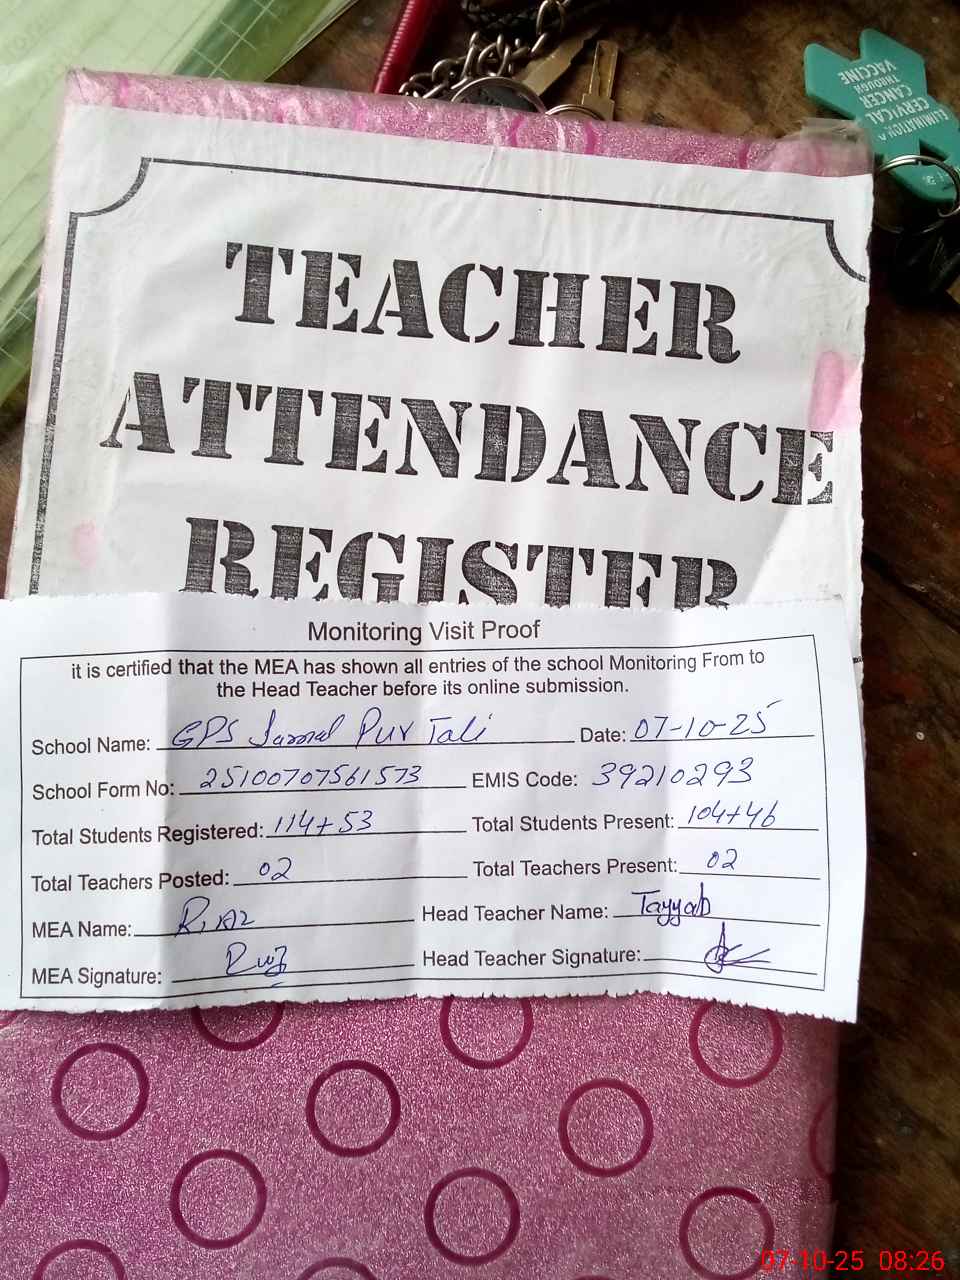 ELIMINATION
CERVICAL
CANCER
THROUGH
VACCINE
TEACHER
ATTENDANCE
REGISTER
Monitoring Visit Proof
it is certified that the MEA has shown all entries of the school Monitoring From to
the Head Teacher before its online submission.
School Name: GPS Jamal Pur Tali Date: 07-10-25
School Form No: 25100707561573 EMIS Code: 39210293
Total Students Registered: 114+53 Total Students Present: 104+46
Total Teachers Posted: 02 Total Teachers Present: 02
MEA Name: Riaz Head Teacher Name: Tayyab
MEA Signature: Head Teacher Signature:
07-10-25 08:26